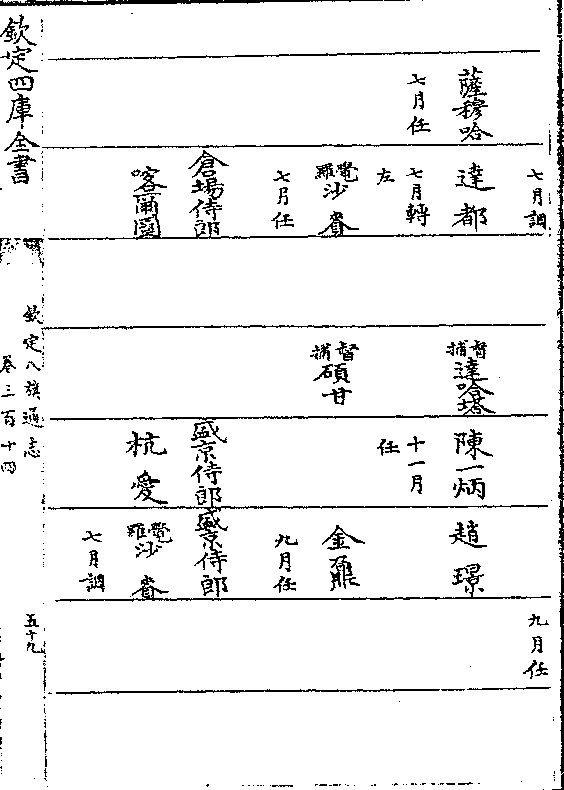 七月調
薩穆哈
七月任
達都
七月轉
左
覺羅沙賚
七月任
倉場侍郎
喀爾圖
督捕達哈塔
督捕碩甘
陳一炳
十一月
任
盛京侍郎
杭愛
趙璟
金鼐
九月任
盛京侍郎
覺羅沙賚
七月調
九月任
欽定四庫全書
欽定八旗通志
卷三百十四
五十九